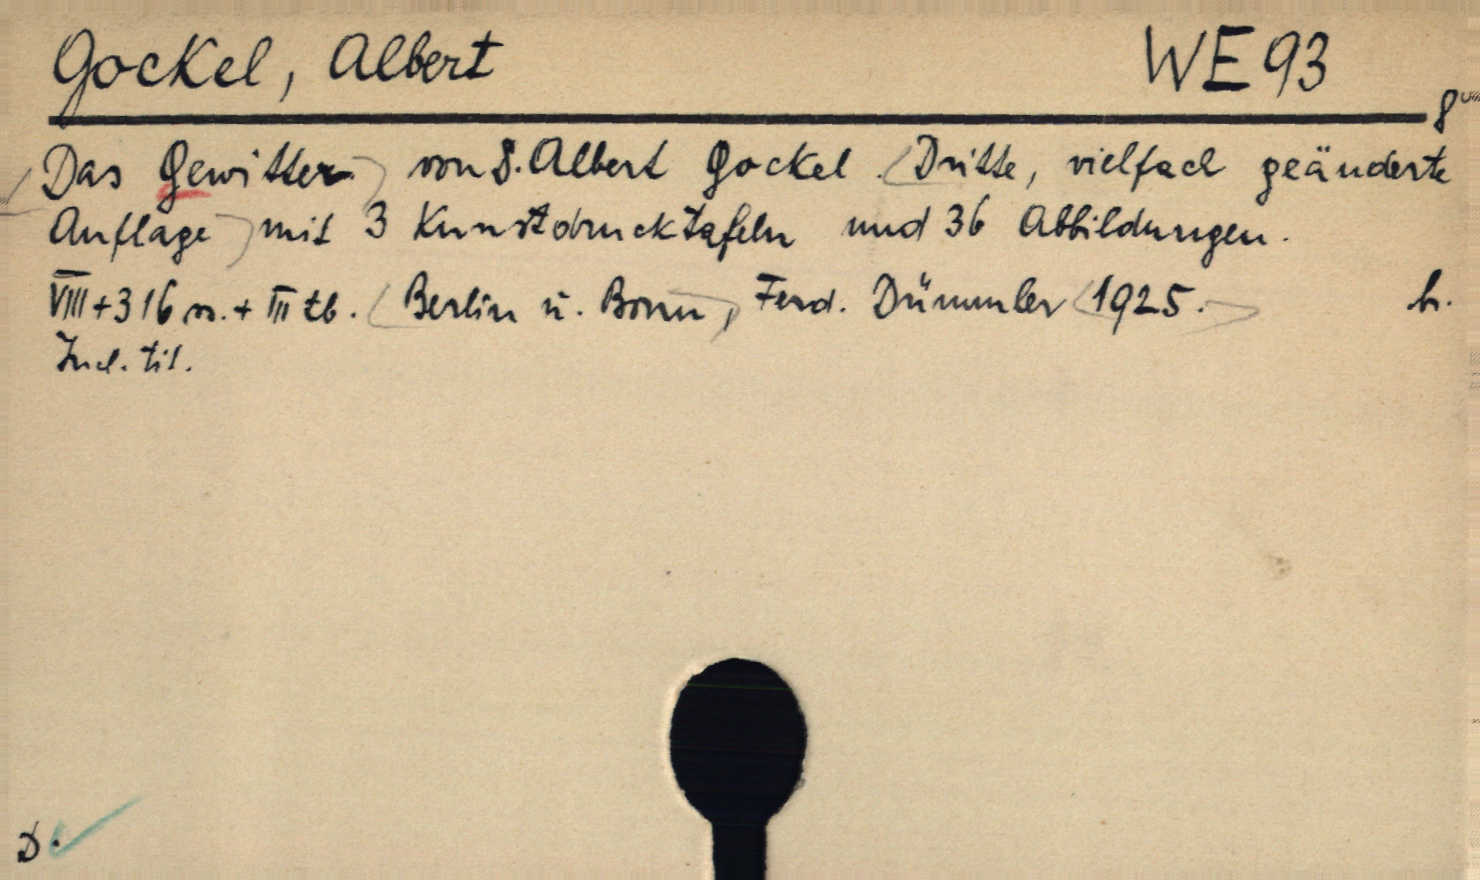 Gockel, Albert WE 93
8vo
Das Gewitter von S. Albert Gockel. Dritte, vielfach geänderte
Auflage mit 3 Kunstdrucktafeln und 36 Abbildungen.
VIII+316 s. + III tb. Berlin u. Bonn, Ferd. Dümmler 1925. h.
Incl. tit.
D.